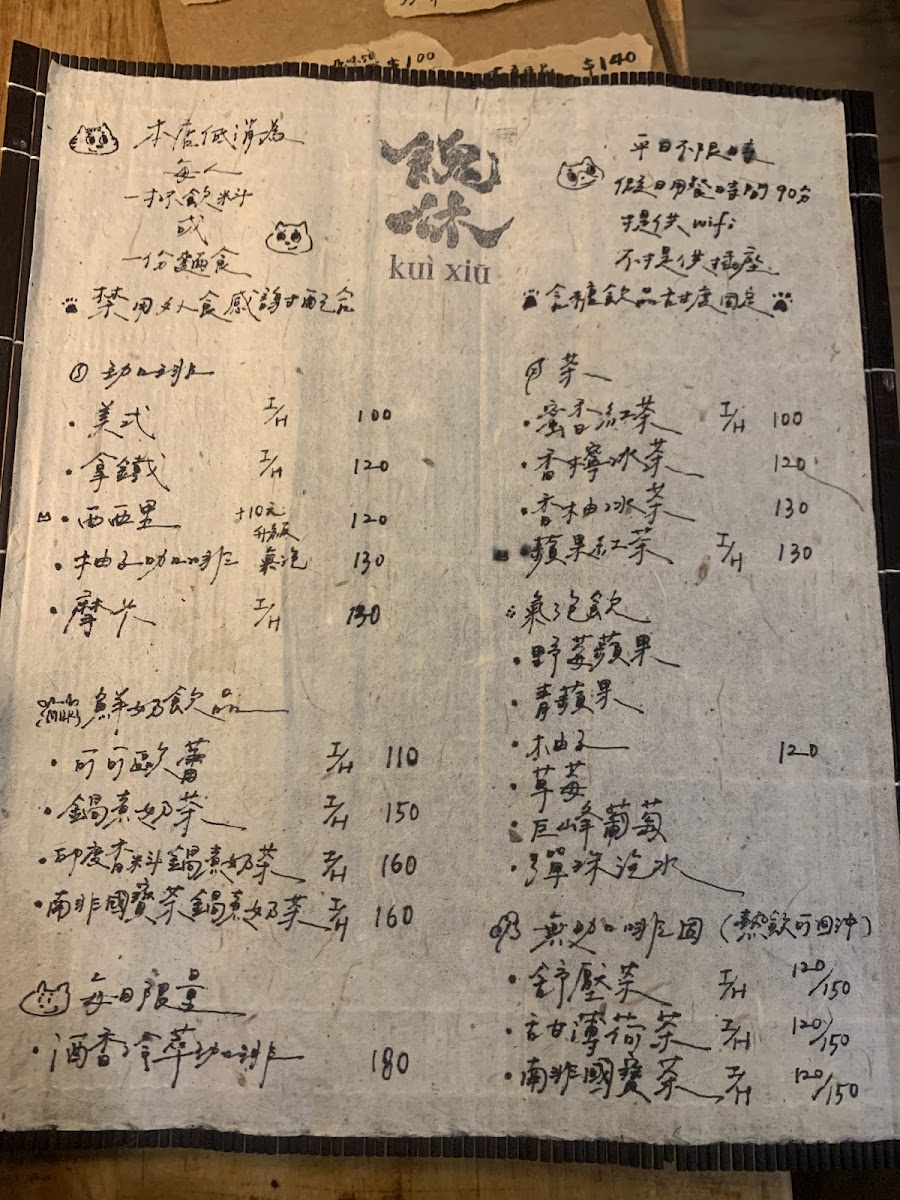 $100
$140
本店低消為
每人
一杯飲料
或
一份麵食
禁用外食感謝配合
kuì xiū
平日不限時
假日用餐時間90分
提供wifi
不提供插座
含糖飲品甜度固定
咖啡
美式 I/H 100
拿鐵 I/H 120
西西里 +10元升級氣泡 120
柚子咖啡 130
摩卡 I/H 130
鮮奶飲品
可可歐蕾 I/H 110
鍋煮奶茶 I/H 150
印度香料鍋煮奶茶 I/H 160
南非國寶茶鍋煮奶茶 I/H 160
每日限量
酒香冷萃咖啡 180
茶
蜜香紅茶 I/H 100
香檸冰茶 120
香柚冰茶 130
蘋果紅茶 I/H 130
氣泡飲
野莓蘋果
青蘋果
柚子 120
草莓
巨峰葡萄
彈珠汽水
無咖啡因(熱飲可回沖)
舒壓茶 I/H 120/150
甜薄荷茶 I/H 120/150
南非國寶茶 I/H 120/150